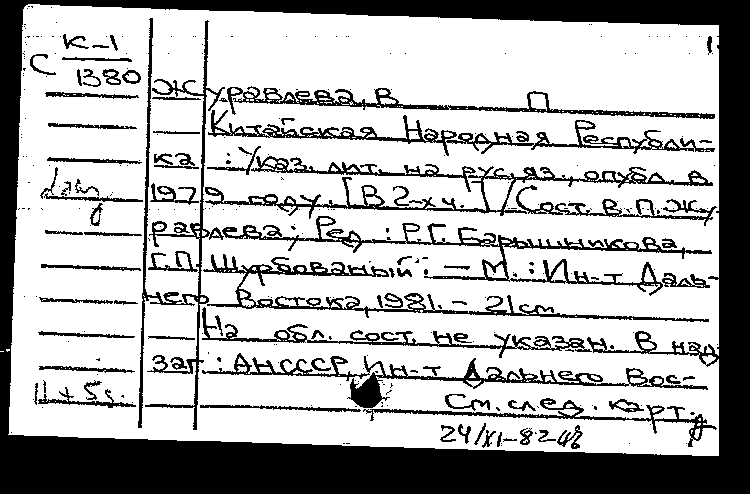 К-1
С 1380
Журавлева, В П
Китайская Народная Республи-
ка : Указ. лит. на рус. яз., опубл. в
1979 году. [В 2-х ч.] / Сост. В.П. Жу-
равлева; Ред.: Р.Г. Барышникова,
Г.П. Щурбованый. — М. : Ин-т Даль-
него Востока, 1981. - 21 см.
На обл. сост. не указан. В над-
заг. : АН СССР, Ин-т Дальнего Вос-
См. след. карт.
24/XI-82